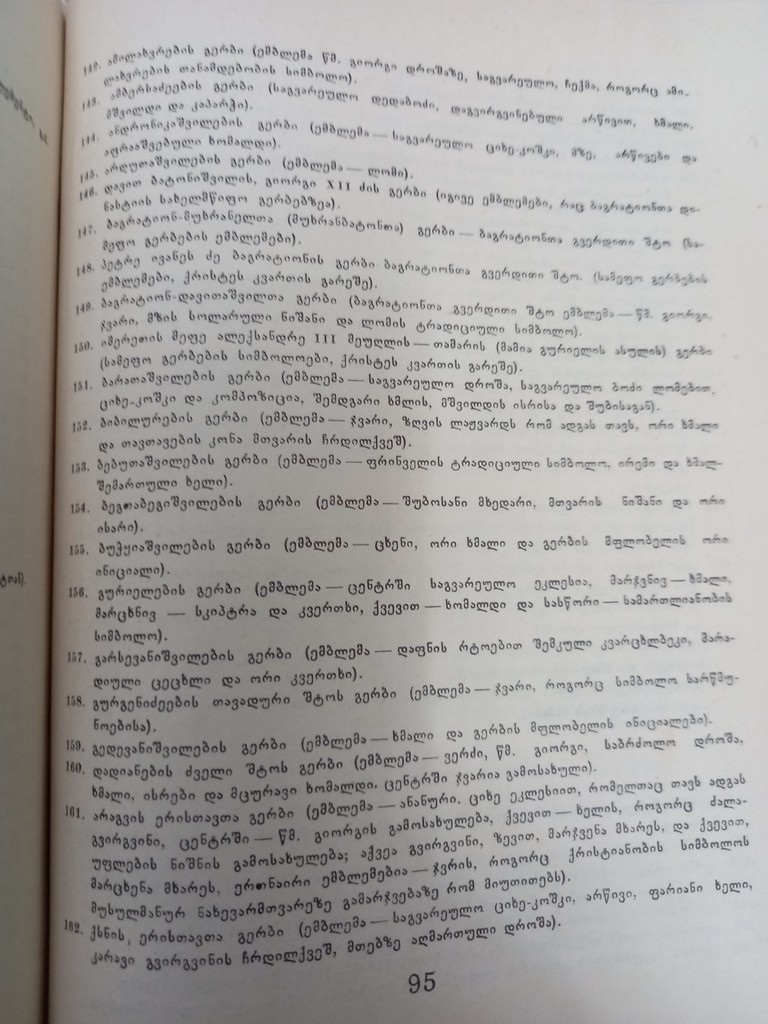 142. ამილახვრების გერბი (ემბლემა წმ. გიორგი დროშაზე, საგვარეულო, ჩექმა, როგორც ამი-
ლახვრების თანამდებობის სიმბოლო).
143. ამბერსაძეების გერბი (საგვარეულო დედაბოძი, დაგვირგვინებული არწივით, ხმალი,
მშვილდი და კაპარჭი).
144. ანდრონიკაშვილების გერბი (ემბლემა — საგვარეულო ციხე-კოშკი, მზე, არწივები და
აფრააშვებული ხომალდი).
145. არღუთაშვილების გერბი (ემბლემა — ლომი).
146. დავით ბატონიშვილის, გიორგი XII ძის გერბი (იგივე ემბლემები, რაც ბაგრატიონთა დი-
ნასტიის სახელმწიფო გერბებზეა).
147. ბაგრატიონ-მუხრანელთა (მუხრანბატონთა) გერბი — ბაგრატიონთა გვერდითი შტო (სა-
მეფო გერბების ემბლემები).
148. პეტრე ივანეს ძე ბაგრატიონის გერბი ბაგრატიონთა გვერდითი შტო. (სამეფო გერბების
ემბლემები, ქრისტეს კვართის გარეშე).
149. ბაგრატიონ-დავითაშვილთა გერბი (ბაგრატიონთა გვერდითი შტო ემბლემა — წმ. გიორგი,
ჯვარი, მზის სოლარული ნიშანი და ლომის ტრადიციული სიმბოლო).
150. იმერეთის მეფე ალექსანდრე III მეუღლის — თამარის (მამია გურიელის ასულის) გერბი
(სამეფო გერბების სიმბოლოები, ქრისტეს კვართის გარეშე).
151. ბარათაშვილების გერბი (ემბლემა — საგვარეულო დროშა, საგვარეულო ბოძი ლომებით,
ციხე-კოშკი და კომპოზიცია, შემდგარი ხმლის, მშვილდის ისრისა და შუბისაგან).
152. ბიბილურების გერბი (ემბლემა — ჯვარი, ზღვის ლაჟვარდს რომ ადგას თავს, ორი ხმალი
და თავთავების კონა მთვარის ჩრდილქვეშ).
153. ბებუთაშვილების გერბი (ემბლემა — ფრინველის ტრადიციული სიმბოლო, ირემი და ხმალ-
შემართული ხელი).
154. ბეგთაბეგიშვილების გერბი (ემბლემა — შუბოსანი მხედარი, მთვარის ნიშანი და ორი
ისარი).
155. ბუჭყიაშვილების გერბი (ემბლემა — ცხენი, ორი ხმალი და გერბის მფლობელის ორი
ინიციალი).
156. გურიელების გერბი (ემბლემა — ცენტრში საგვარეულო ეკლესია, მარჯვნივ — ხმალი,
მარცხნივ — სკიპტრა და კვერთხი, ქვევით — ხომალდი და სასწორი — სამართლიანობის
სიმბოლო).
157. გარსევანიშვილების გერბი (ემბლემა — დაფნის რტოებით შემკული კვარცხლბეკი, მარა-
დიული ცეცხლი და ორი კვერთხი).
158. გურგენიძეების თავადური შტოს გერბი (ემბლემა — ჯვარი, როგორც სიმბოლო სარწმუ-
ნოებისა).
159. გედევანიშვილების გერბი (ემბლემა — ხმალი და გერბის მფლობელის ინიციალები).
160. დადიანების ძველი შტოს გერბი (ემბლემა — ვერძი, წმ. გიორგი, საბრძოლო დროშა,
ხმალი, ისრები და მცურავი ხომალდი. ცენტრში ჯვარია გამოსახული).
161. არაგვის ერისთავთა გერბი (ემბლემა — ანანური. ციხე ეკლესიით, რომელთაც თავს ადგას
გვირგვინი, ცენტრში — წმ. გიორგის გამოსახულება, ქვევით — ხელის, როგორც ძალა-
უფლების ნიშნის გამოსახულება; აქვეა გვირგვინი, ზევით, მარჯვენა მხარეს, და ქვევით,
მარცხენა მხარეს, ერთნაირი ემბლემებია — ჯვრის, როგორც ქრისტიანობის სიმბოლოს
მუსულმანურ ნახევარმთვარეზე გამარჯვებაზე რომ მიუთითებს).
162. ქსნის, ერისთავთა გერბი (ემბლემა — საგვარეულო ციხე-კოშკი, არწივი, ფარიანი ხელი,
კარავი გვირგვინის ჩრდილქვეშ, მთებზე აღმართული დროშა).
95